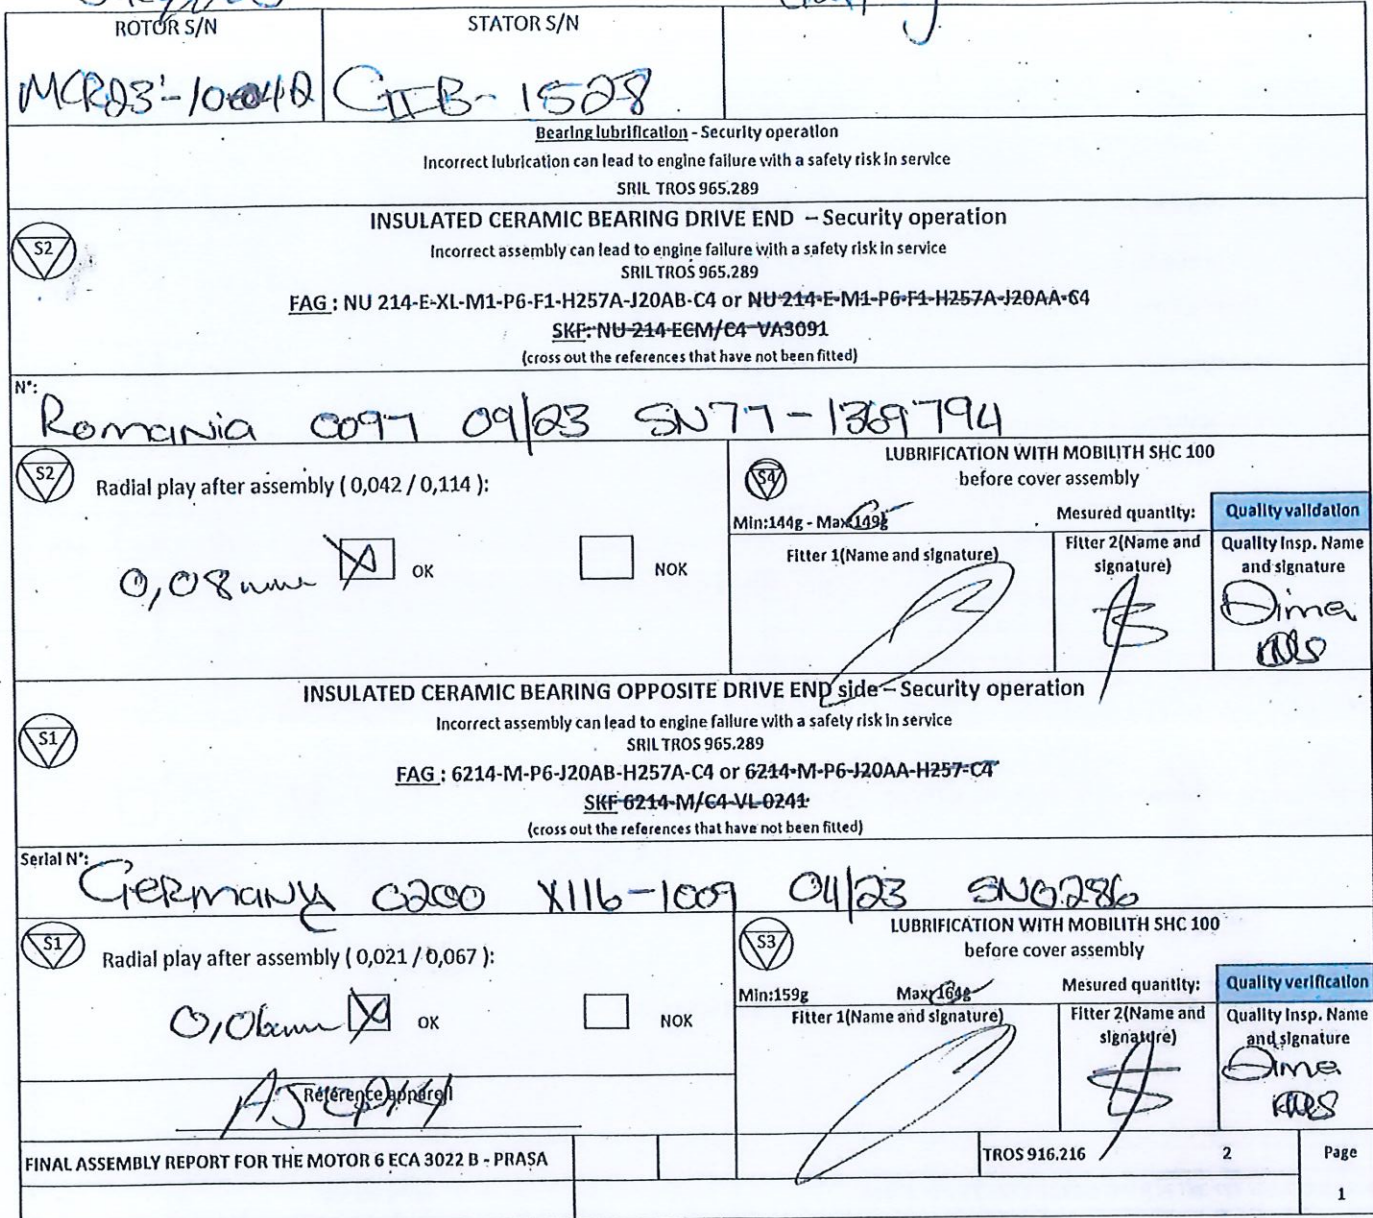 ROTOR S/N STATOR S/N
GIIB- 1528
Bearing lubrification - Security operation
Incorrect lubrication can lead to engine failure with a safety risk in service
SRIL TROS 965.289
S2 INSULATED CERAMIC BEARING DRIVE END – Security operation
Incorrect assembly can lead to engine failure with a safety risk in service
SRIL TROS 965.289
FAG : NU 214-E-XL-M1-P6-F1-H257A-J20AB-C4 or NU 214-E-M1-P6-F1-H257A-J20AA-C4
SKF: NU 214 ECM/C4 VA3091
(cross out the references that have not been fitted)
N°:
Romania 0097 09/23 SN77-1369794
S2 Radial play after assembly ( 0,042 / 0,114 ):
0,08mm OK NOK
S4 LUBRIFICATION WITH MOBILITH SHC 100
before cover assembly
Min:144g - Max:149g Mesured quantity: Quality validation
Fitter 1(Name and signature) Fitter 2(Name and signature) Quality Insp. Name and signature
Dima
INSULATED CERAMIC BEARING OPPOSITE DRIVE END side – Security operation
S1 Incorrect assembly can lead to engine failure with a safety risk in service
SRIL TROS 965.289
FAG : 6214-M-P6-J20AB-H257A-C4 or 6214-M-P6-J20AA-H257-C4
SKF 6214-M/C4-VL-0241
(cross out the references that have not been fitted)
Serial N°:
Germany 0200 X116-1009 04/23 SN0286
S1 Radial play after assembly ( 0,021 / 0,067 ):
OK NOK
Référence appareil
S3 LUBRIFICATION WITH MOBILITH SHC 100
before cover assembly
Min:159g Max:164g Mesured quantity: Quality verification
Fitter 1(Name and signature) Fitter 2(Name and signature) Quality Insp. Name and signature
Dima
FINAL ASSEMBLY REPORT FOR THE MOTOR 6 ECA 3022 B - PRASA TROS 916.216 2 Page
1